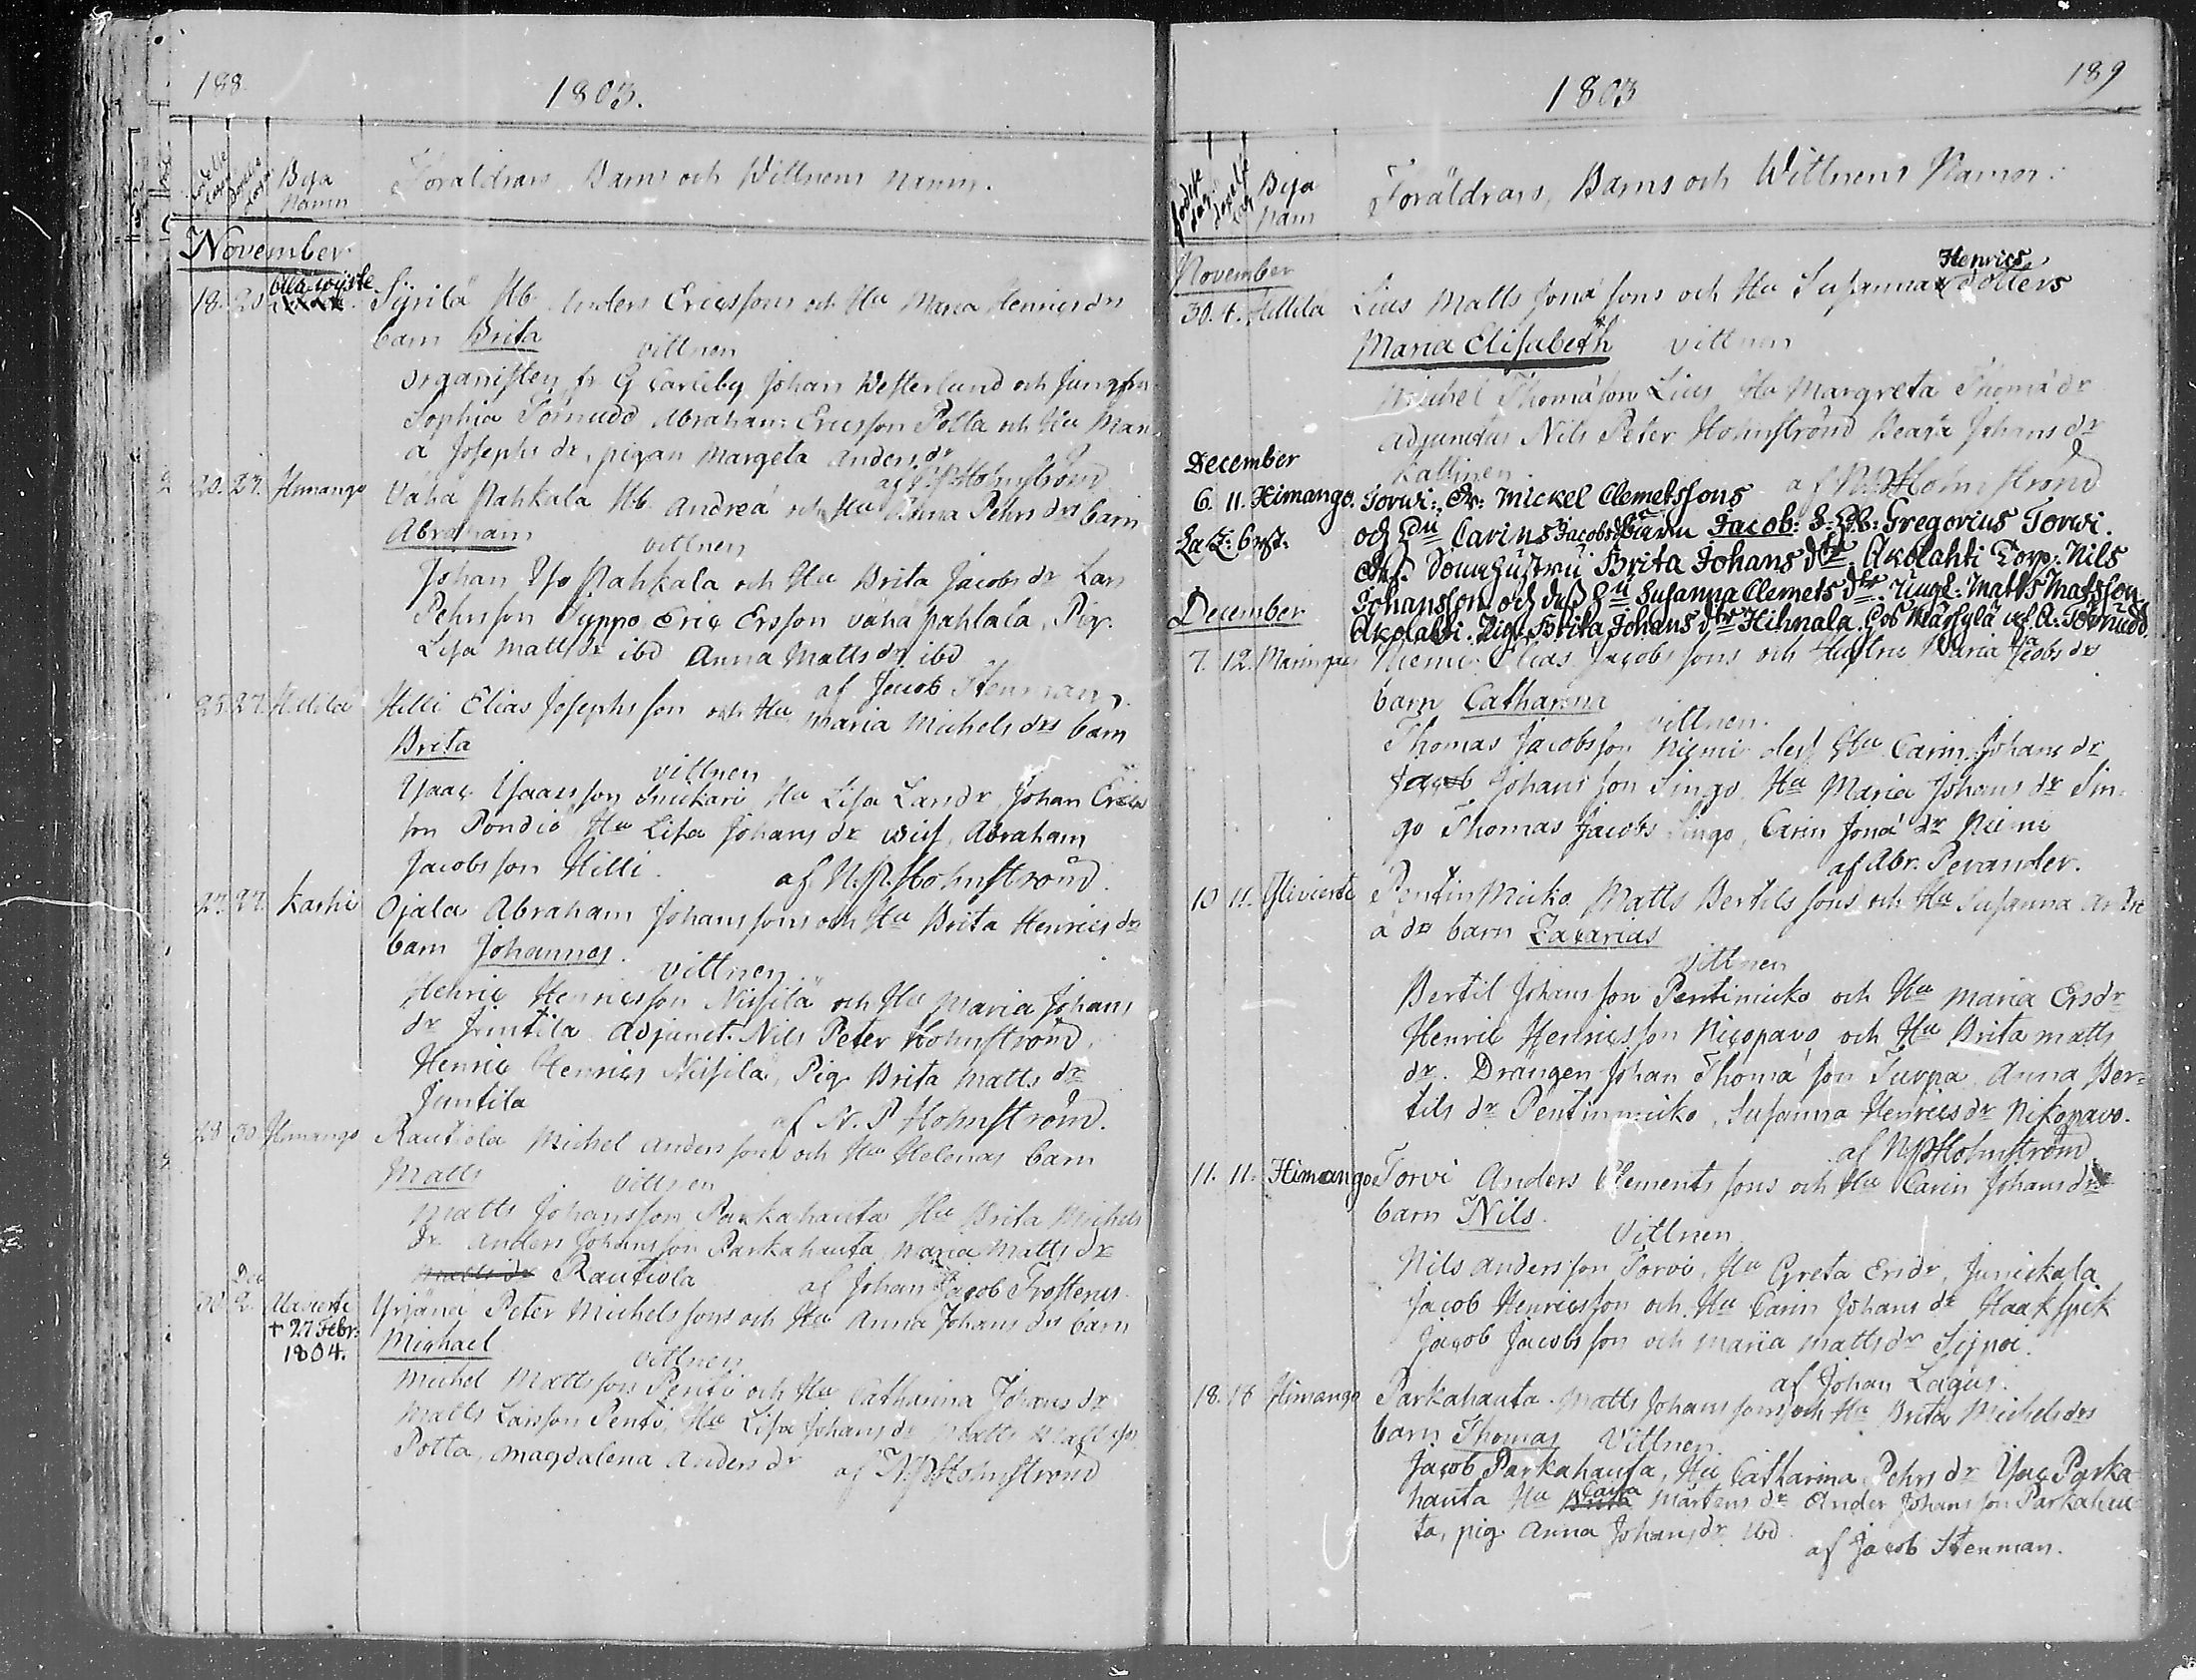 188.
1803.
Födelse dagen Döpelse dagen Bya Namn
Föräldrars, Barns och Wittnens namn.
November
18. 20. Sÿrilä Hb. Anders Ericssons och Hu Maria Henrics drs
barn Brita
vittnen
organisten fr G Carleby Johan Westerlund och Jungfru
Sophia Törnudd Abraham Ericsson Potta och Hu Mari
a Josephs dr, pigan Margeta Anders dr
af N P Holmström
20. 27. Himango Vähä Pahkala Hb. Andreá och Hu Anna Pehrs drs barn
Abraham
vittnen
Johan Yso Pahkala och Hu Brita Jacobs dr Lars
Pehrsson Typpo Eric Ersson vähä pahkala, Pig.
Lisa Matts dr ibd Anna Matts dr ibd
af Jacob Stenman.
25. 27. Hillilä Hilli Elias Josephs son och Hu Maria Michels drs barn
Brita
vittnen
Ysaac Ysaacsson Snickari Hu Lisa Lars dr, Johan Erics
son Pondio Hu Lisa Johans dr, Abraham
Jacobs son Hilli.
af N. P. Holmström.
27. 27. Kashi Ojala Abraham Johanssons och Hu Brita Henrics drs
barn Johannes.
vittnen.
Henric Henricsson Niisilä och Hu Maria Johans
dr Juntila Adjunct. Nils Peter Holmström,
Henric Henrics Niisilä, Pig. Brita Matts dr
Juntila
af N. P Holmström.
28 30 Himango Rautiola Michel Anders sons och Hu Helenas barn
Matts
vittnen
Matts Johansson Parkahauta Hu Brita Michels
dr Anders Johansson Parkahauta, Maria Matts dr
Matts dr Rautiola
af Johan Jacob Frosterus.
Dec
30. 2. Uavierte Yrjänä Peter Michelssons och Hu Anna Johans drs barn
+ 27 Febr. 1804.
Michael
vittnen
Michel Mattsson Penti och Hu Catharina Johans dr
Matts Larsson Penti, Hu Lisa Johans dr Matts Mattsson
Potta, Magdalena Anders dr
af N. P Holmström
1803
189
Födelse dag Döpelse dag Bya Nam
Föräldrars, Barns och Wittnens Namn.
November
Henrics
30. 4. Hillilä Lius Matts Joná sons och Hu Susanna dotters
Maria Elisabeth vittnen
Michel Thomásson Lius Hu Margreta Thomá dr
Adjunctus Nils Peter Holmström Beata Johans dr
Kallinen.
af N P Holmström
December
6. 11. Himango. Torwi: Dr: Mickel Clemetssons
och Hu Carins Jacobs dr Barn Jacob: S. Hb: Gregorius Torwi.
Brita Johans dtr. Akolahti Torp: Nils
Johansson och dess Hu Susanna Clemets dtr. Ungk: Matts Matsson
Akolahti. Pig: Brita Johans dtr Hihnala. af A. Törnudd.
December
7. 12. Maringais Niemi Elias Jacobs sons och Hustru Maria Jacobs drs
barn Catharina
vittnen.
Thomas Jacobsson Niemi dess Hu Carin Johans dr
Jacob Johans son Singo. Hu Maria Johans dr Sin-
go Thomas Jacobs Singo, Carin Joná dr Niemi
af Abr. Perander.
10 11. Ylivierte Pentin Micko Matts Bertils sons och Hu Susanna Andre
á drs barn Zacarias
vittnen
Bertil Johans son Pentimicko och Hu Maria Ersdr
Henric Henricsson Nicopavo och Hu Brita Matts
dr. Drängen Johan Thomá son Tuorpa Anna Ber-
tils dr Pentinmicko, Susanna Henrics dr Nikopavo.
af N P Holmström
11. 11. Himango Torvi Anders Clements sons och Hu Carin Johans drs
barn Nils.
Vittnen.
Nils Andersson Torvi, Hu Greta Ersdr, Junickala
Jacob Henricsson och Hu Carin Johans dr Haakspik
Jacob Jacobsson och Maria Matts dr Sijpoi.
af Johan Lagus.
18. 18 Himango Parkahauta. Matts Johanssons och Hu Brita Michels drs
barn Thomas Vittnen.
Jacob Parkahauta, Hu Catharina Pehrs dr Ysac Parka
hauta Hu Brita Mårtens dr Ander Johansson Parkahau-
ta, pig. Anna Johans dr ibd.
af Jacob Stenman.